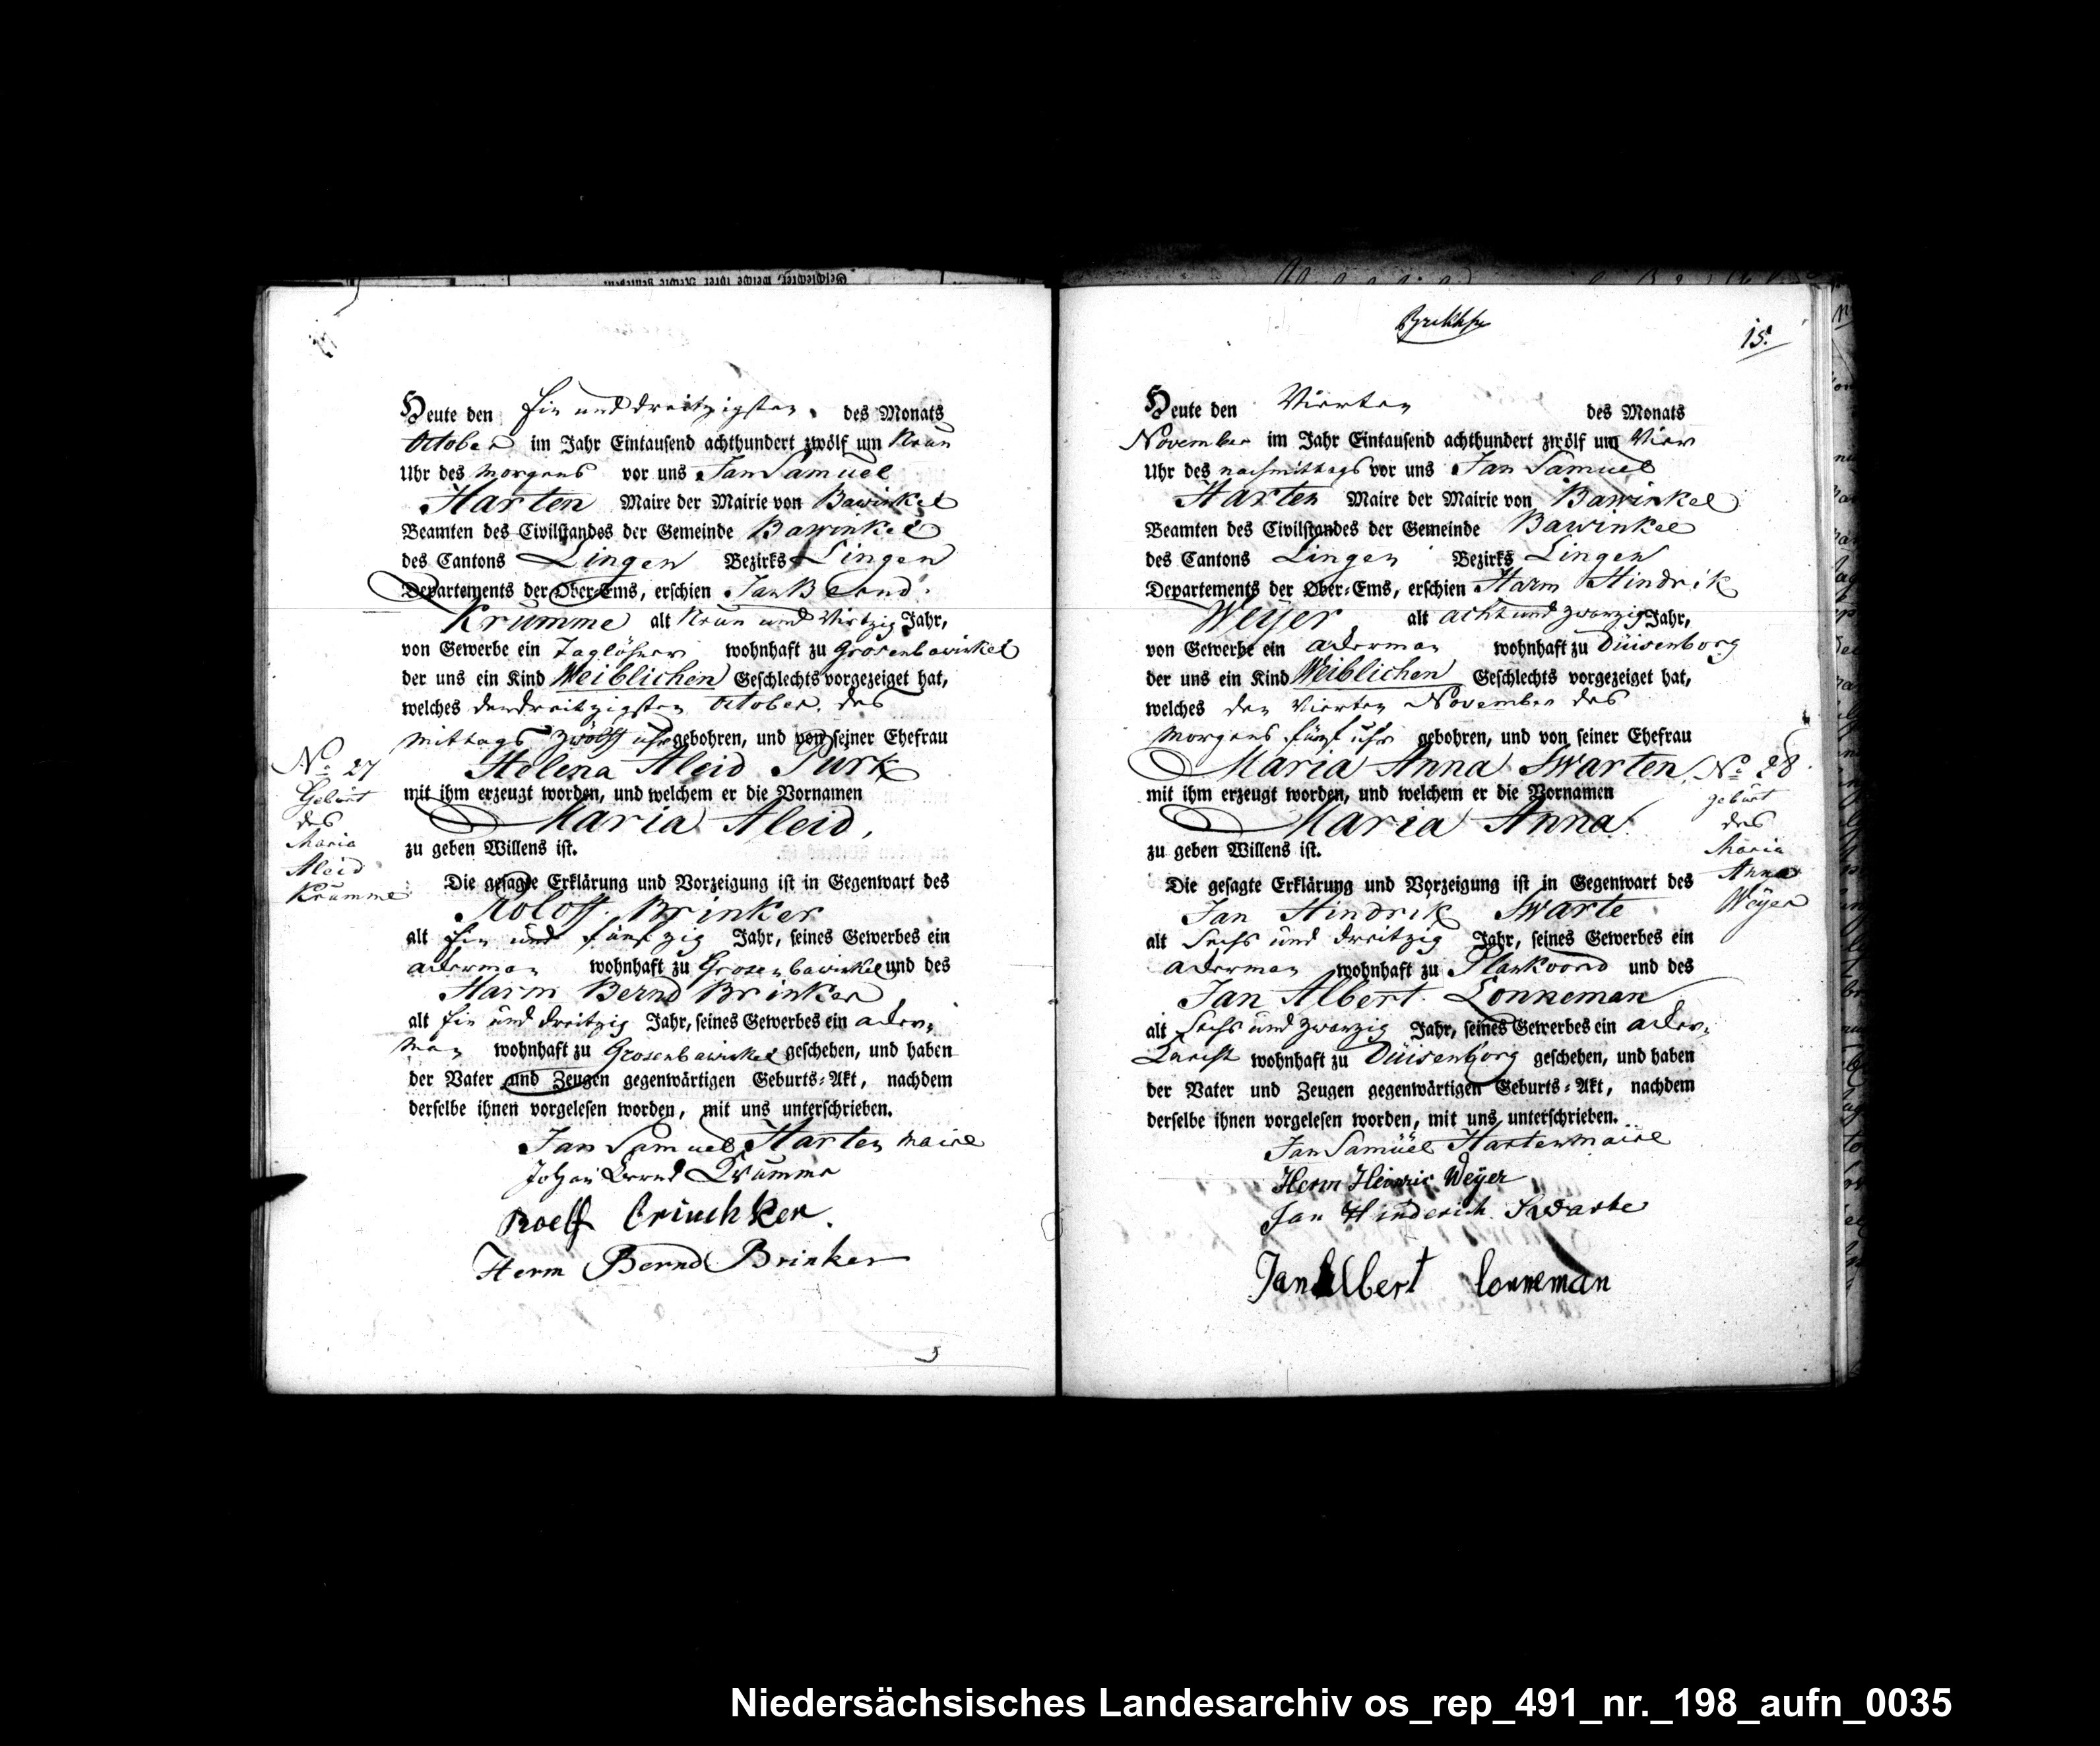 Heute den Ein und dreitzigsten des Monats
October im Jahr Eintausend achthundert zwölf um Neun
Uhr des Morgens vor uns Jan Samuel
Harten Maire der Mairie von Bawinkel
Beamten des Civilstandes der Gemeinde Bawinkel
des Cantons Lingen Bezirks Lingen
Departements der Ober-Ems, erschien Jan Bernd
Krumme alt Neun und Virtzig Jahr,
von Gewerbe ein Taglöhner wohnhaft zu Grosenbawinkel
der uns ein Kind Weiblichen Geschlechts vorgezeiget hat,
welches den dreitzigsten October des
Mittags Zwölf uhr gebohren, und von seiner Ehefrau
Helena Aleid Purk
mit ihm erzeugt worden, und welchem er die Vornamen
Maria Aleid,
zu geben Willens ist.
Die gesagte Erklärung und Vorzeigung ist in Gegenwart des
Roloff Brinker
alt Ein und fünfzig Jahr, seines Gewerbes ein
ackerman wohnhaft zu Grosenbawinkel und des
Harm Bernd Brinker
alt Ein und dreitzig Jahr, seines Gewerbes ein acker-
man wohnhaft zu Grosenbawinkel geschehen, und haben
der Vater und Zeugen gegenwärtigen Geburts-Akt, nachdem
derselbe ihnen vorgelesen worden, mit uns unterschrieben.
Jan Samuel Harten Maire
Johan Bernd Krumme
Roelf Brinchker.
Herm Bernd Brinker
No 27
Gebürt
des
Maria
Aleid
Krümme
15.
Heute den Vierten des Monats
November im Jahr Eintausend achthundert zwölf um Vier
Uhr des nachmittags vor uns Jan Samuel
Harten Maire der Mairie von Bawinkel
Beamten des Civilstandes der Gemeinde Bawinkel
des Cantons Lingen Bezirks Lingen
Departements der Ober-Ems, erschien Harm Hindrik
Weÿer alt acht und zwanzig Jahr,
von Gewerbe ein ackerman wohnhaft zu Düisenborg
der uns ein Kind Weiblichen Geschlechts vorgezeiget hat,
welches den Vierten November des
Morgens fünf uhr gebohren, und von seiner Ehefrau
Maria Anna Swarten
mit ihm erzeugt worden, und welchem er die Vornamen
Maria Anna
zu geben Willens ist.
Die gesagte Erklärung und Vorzeigung ist in Gegenwart des
Jan Hindrik Swarte
alt Sechs und dreitzig Jahr, seines Gewerbes ein
ackerman wohnhaft zu Plankoord und des
Jan Albert Lonneman
alt Sechs und zwanzig Jahr, seines Gewerbes ein acker-
wohnhaft zu Düisenborg geschehen, und haben
der Vater und Zeugen gegenwärtigen Geburts-Akt, nachdem
derselbe ihnen vorgelesen worden, mit uns unterschrieben.
Jan Samüel Harten Maire
Herm Heinric Weÿer
Jan Hinderich Swarte
Jan Albert Lonneman
No 28
gebürt
des
Maria
Anna
Weÿer
Niedersächsisches Landesarchiv os_rep_491_nr._198_aufn_0035